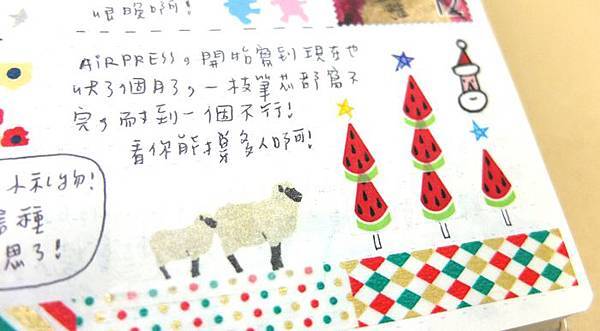 很晚啊!
AiRPRESS,開始寫到現在也
快3個月了,一枝筆芯都寫不
完,耐到一個不行!
看你能撐多久啊!
小禮物!
這種
思了!